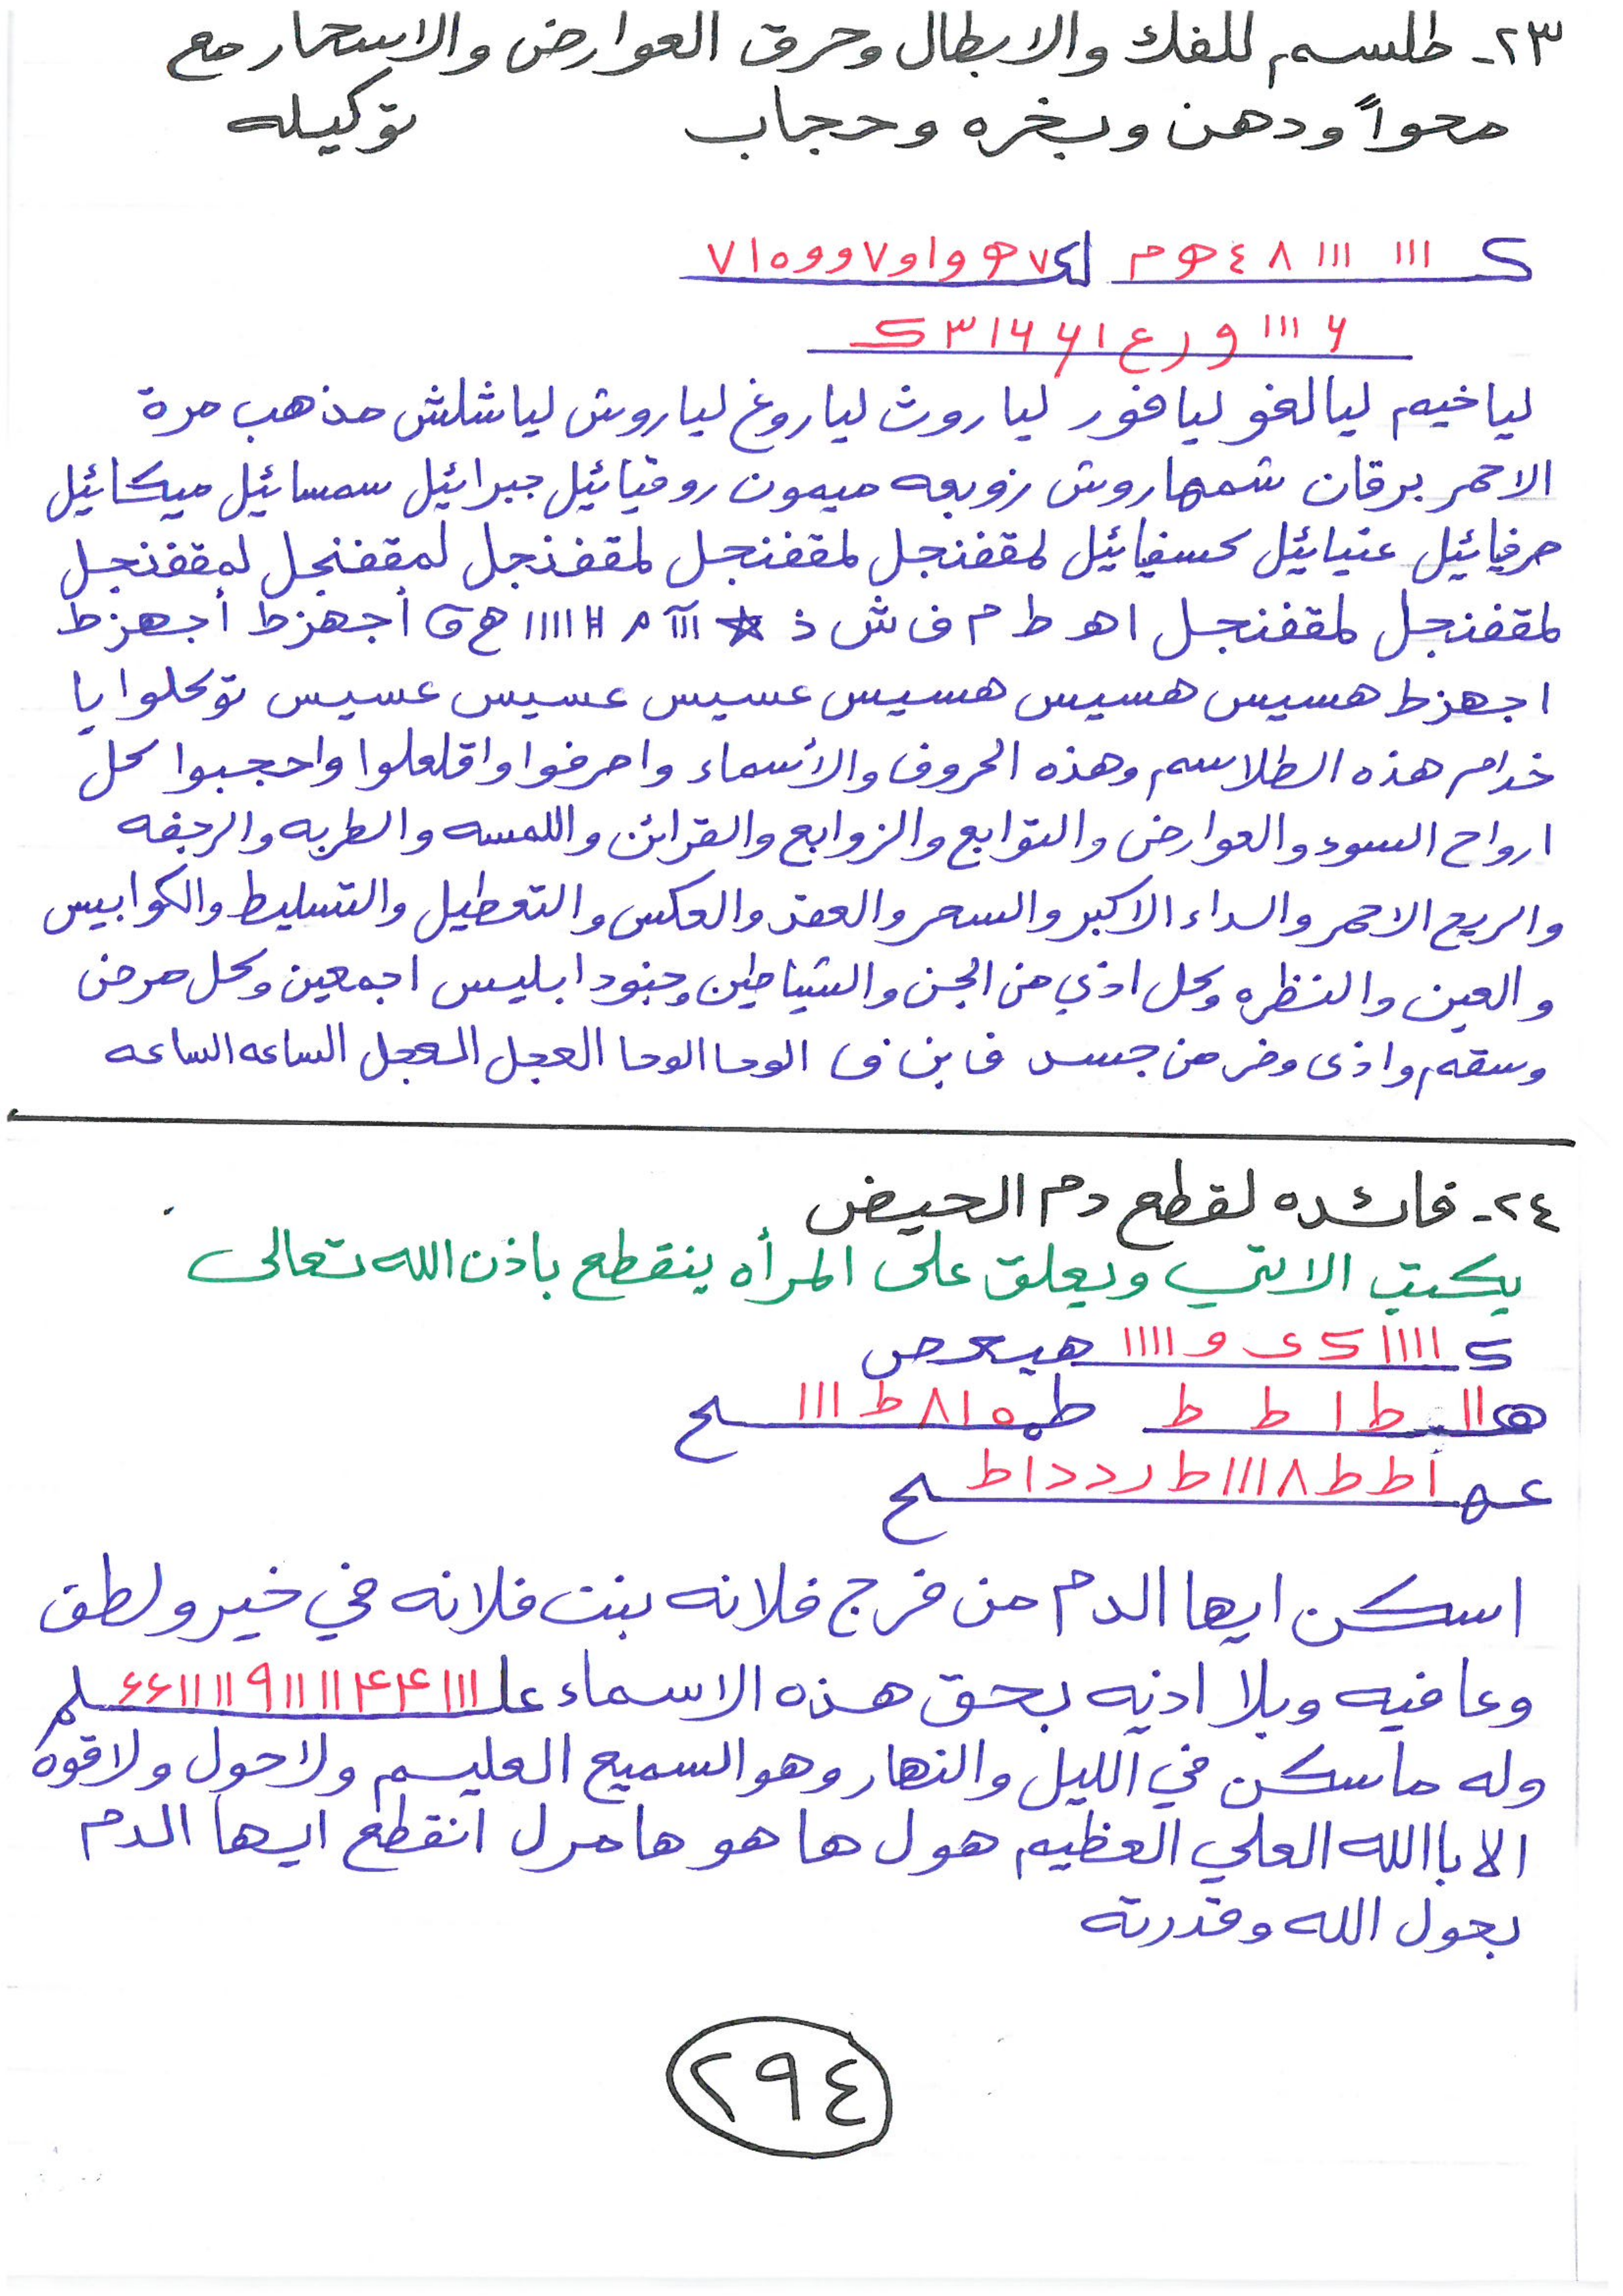 ٢٣- طلسم للفك والابطال وحرق العوارض والاسحار مع
محواً ودهن وبخره وحجاب توكيله
ک ١١١ ١١١ ٨ ٤ ھ م لک ٧ ھ و ا و ٧ و و ٥ ١ ٧
٦ ١١١ و ر ع ١ ٦ ٦ ١ ٣ ک
لياخيم ليالغو ليافور لياروث لياروغ لياروش لياشلش مذهب مرة
الاحمر برقان شمهاروش زوبعه ميمون روقيائيل جبرائيل سمسائيل ميكائيل
صرفيائيل عنيائيل كسفيائيل لمقفنجل لمقفنجل لمقفنجل لمقفنجل لمقفنجل
لمقفنجل لمقفنجل ا هـ ط م ف ش ذ ☆ ااا م # ١١١١ هـ و أجهزط أجهزط
اجهزط هسيس هسيس هسيس عسيس عسيس عسيس توكلوا يا
خدام هذه الطلاسم وهذه الحروف والأسماء واصرفوا واقلعلوا واحجبوا كل
ارواح السوء والعوارض والتوابع والزوابع والقرائن واللمسه والطربه والرجفه
والريح الاحمر والداء الاكبر والسحر والعقد والعكس والتعطيل والتسليط والكوابيس
والعين والنظره وكل اذي من الجن والشياطين وجنود ابليس اجمعين وكل مرض
وسقم واذى وضر من جسد ف بن ف الوحا الوحا العجل العجل الساعه الساعه
٢٤- فائده لقطع دم الحيض
يكتب الاتي ويعلق على المرأه ينقطع باذن الله تعالى
ک ١١١١ ک ى و ١١١١ هيعص
هـ ١١ ط ا ط ط طه ٥ ١ ٨ ط ١١١ ح
عهـ أ ط ط ٨ ١١١ ط ر د د ا ط ح
اسكن ايها الدم من فرج فلانه بنت فلانه في خير ولطق
وعافيه وبلا اذيه بحق هذه الاسماء علـ ١١١ ۴ ۴ ١١ ١١١ ٩ ١١ ١١١ ۶ ۶ ـلم
وله ماسكن في الليل والنهار وهو السميع العليم ولاحول ولاقوه
الا باالله العلي العظيم هول ها هو هامرل انقطع ايها الدم
بحول الله وقدرته
٢٩٤